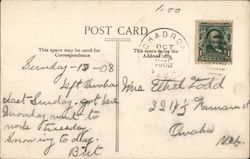 1.00
POST CARD
This space may be used for
Correspondence
This space is for the
Address only.
CHADRON
OCT
1908
Sunday - 18 - 08
Left Omaha
last Sunday, got here
Monday went to
work Tuesday
Snowing to day.
Bert
Mrs Ethel Todd
2214½ Farnam st
Omaha
Neb.